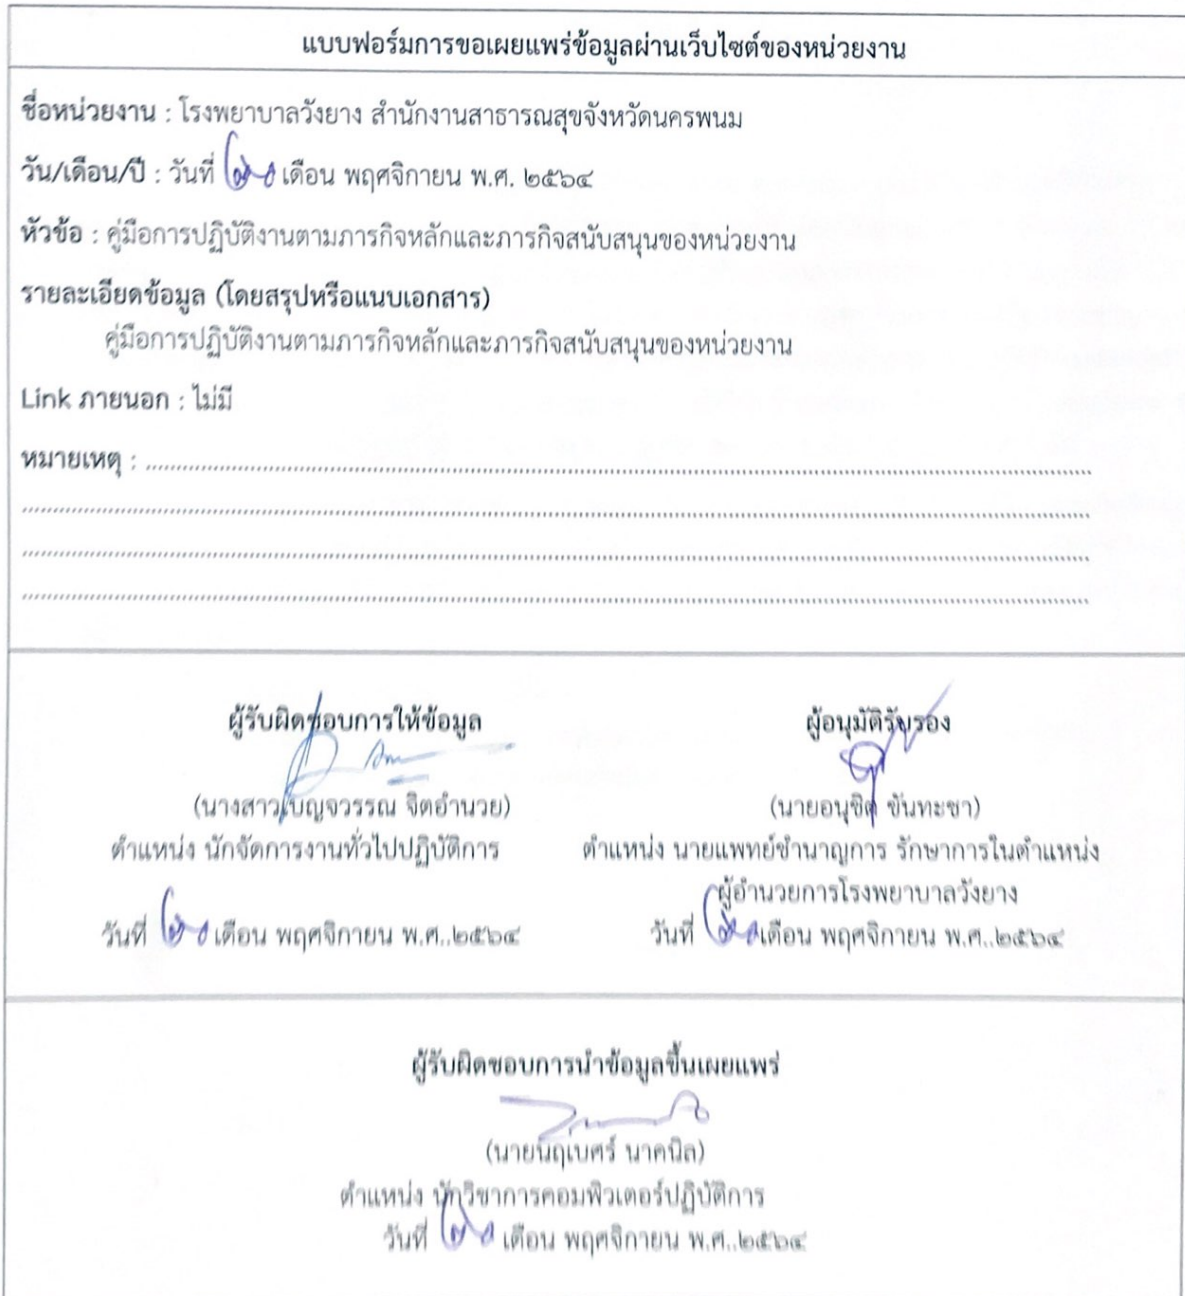 แบบฟอร์มการขอเผยแพร่ข้อมูลผ่านเว็บไซต์ของหน่วยงาน
ชื่อหน่วยงาน : โรงพยาบาลวังยาง สำนักงานสาธารณสุขจังหวัดนครพนม
วัน/เดือน/ปี : วันที่ เดือน พฤศจิกายน พ.ศ. ๒๕๖๔
หัวข้อ : คู่มือการปฏิบัติงานตามภารกิจหลักและภารกิจสนับสนุนของหน่วยงาน
รายละเอียดข้อมูล (โดยสรุปหรือแนบเอกสาร)
คู่มือการปฏิบัติงานตามภารกิจหลักและภารกิจสนับสนุนของหน่วยงาน
Link ภายนอก : ไม่มี
หมายเหตุ :
ผู้รับผิดชอบการให้ข้อมูล
(นางสาวเบญจวรรณ จิตอำนวย)
ตำแหน่ง นักจัดการงานทั่วไปปฏิบัติการ
วันที่ เดือน พฤศจิกายน พ.ศ..๒๕๖๔
ผู้อนุมัติรับรอง
(นายอนุชิต ขันทะชา)
ตำแหน่ง นายแพทย์ชำนาญการ รักษาการในตำแหน่ง
ผู้อำนวยการโรงพยาบาลวังยาง
วันที่ เดือน พฤศจิกายน พ.ศ..๒๕๖๔
ผู้รับผิดชอบการนำข้อมูลขึ้นเผยแพร่
(นายนฤเบศร์ นาคนิล)
ตำแหน่ง นักวิชาการคอมพิวเตอร์ปฏิบัติการ
วันที่ เดือน พฤศจิกายน พ.ศ..๒๕๖๔